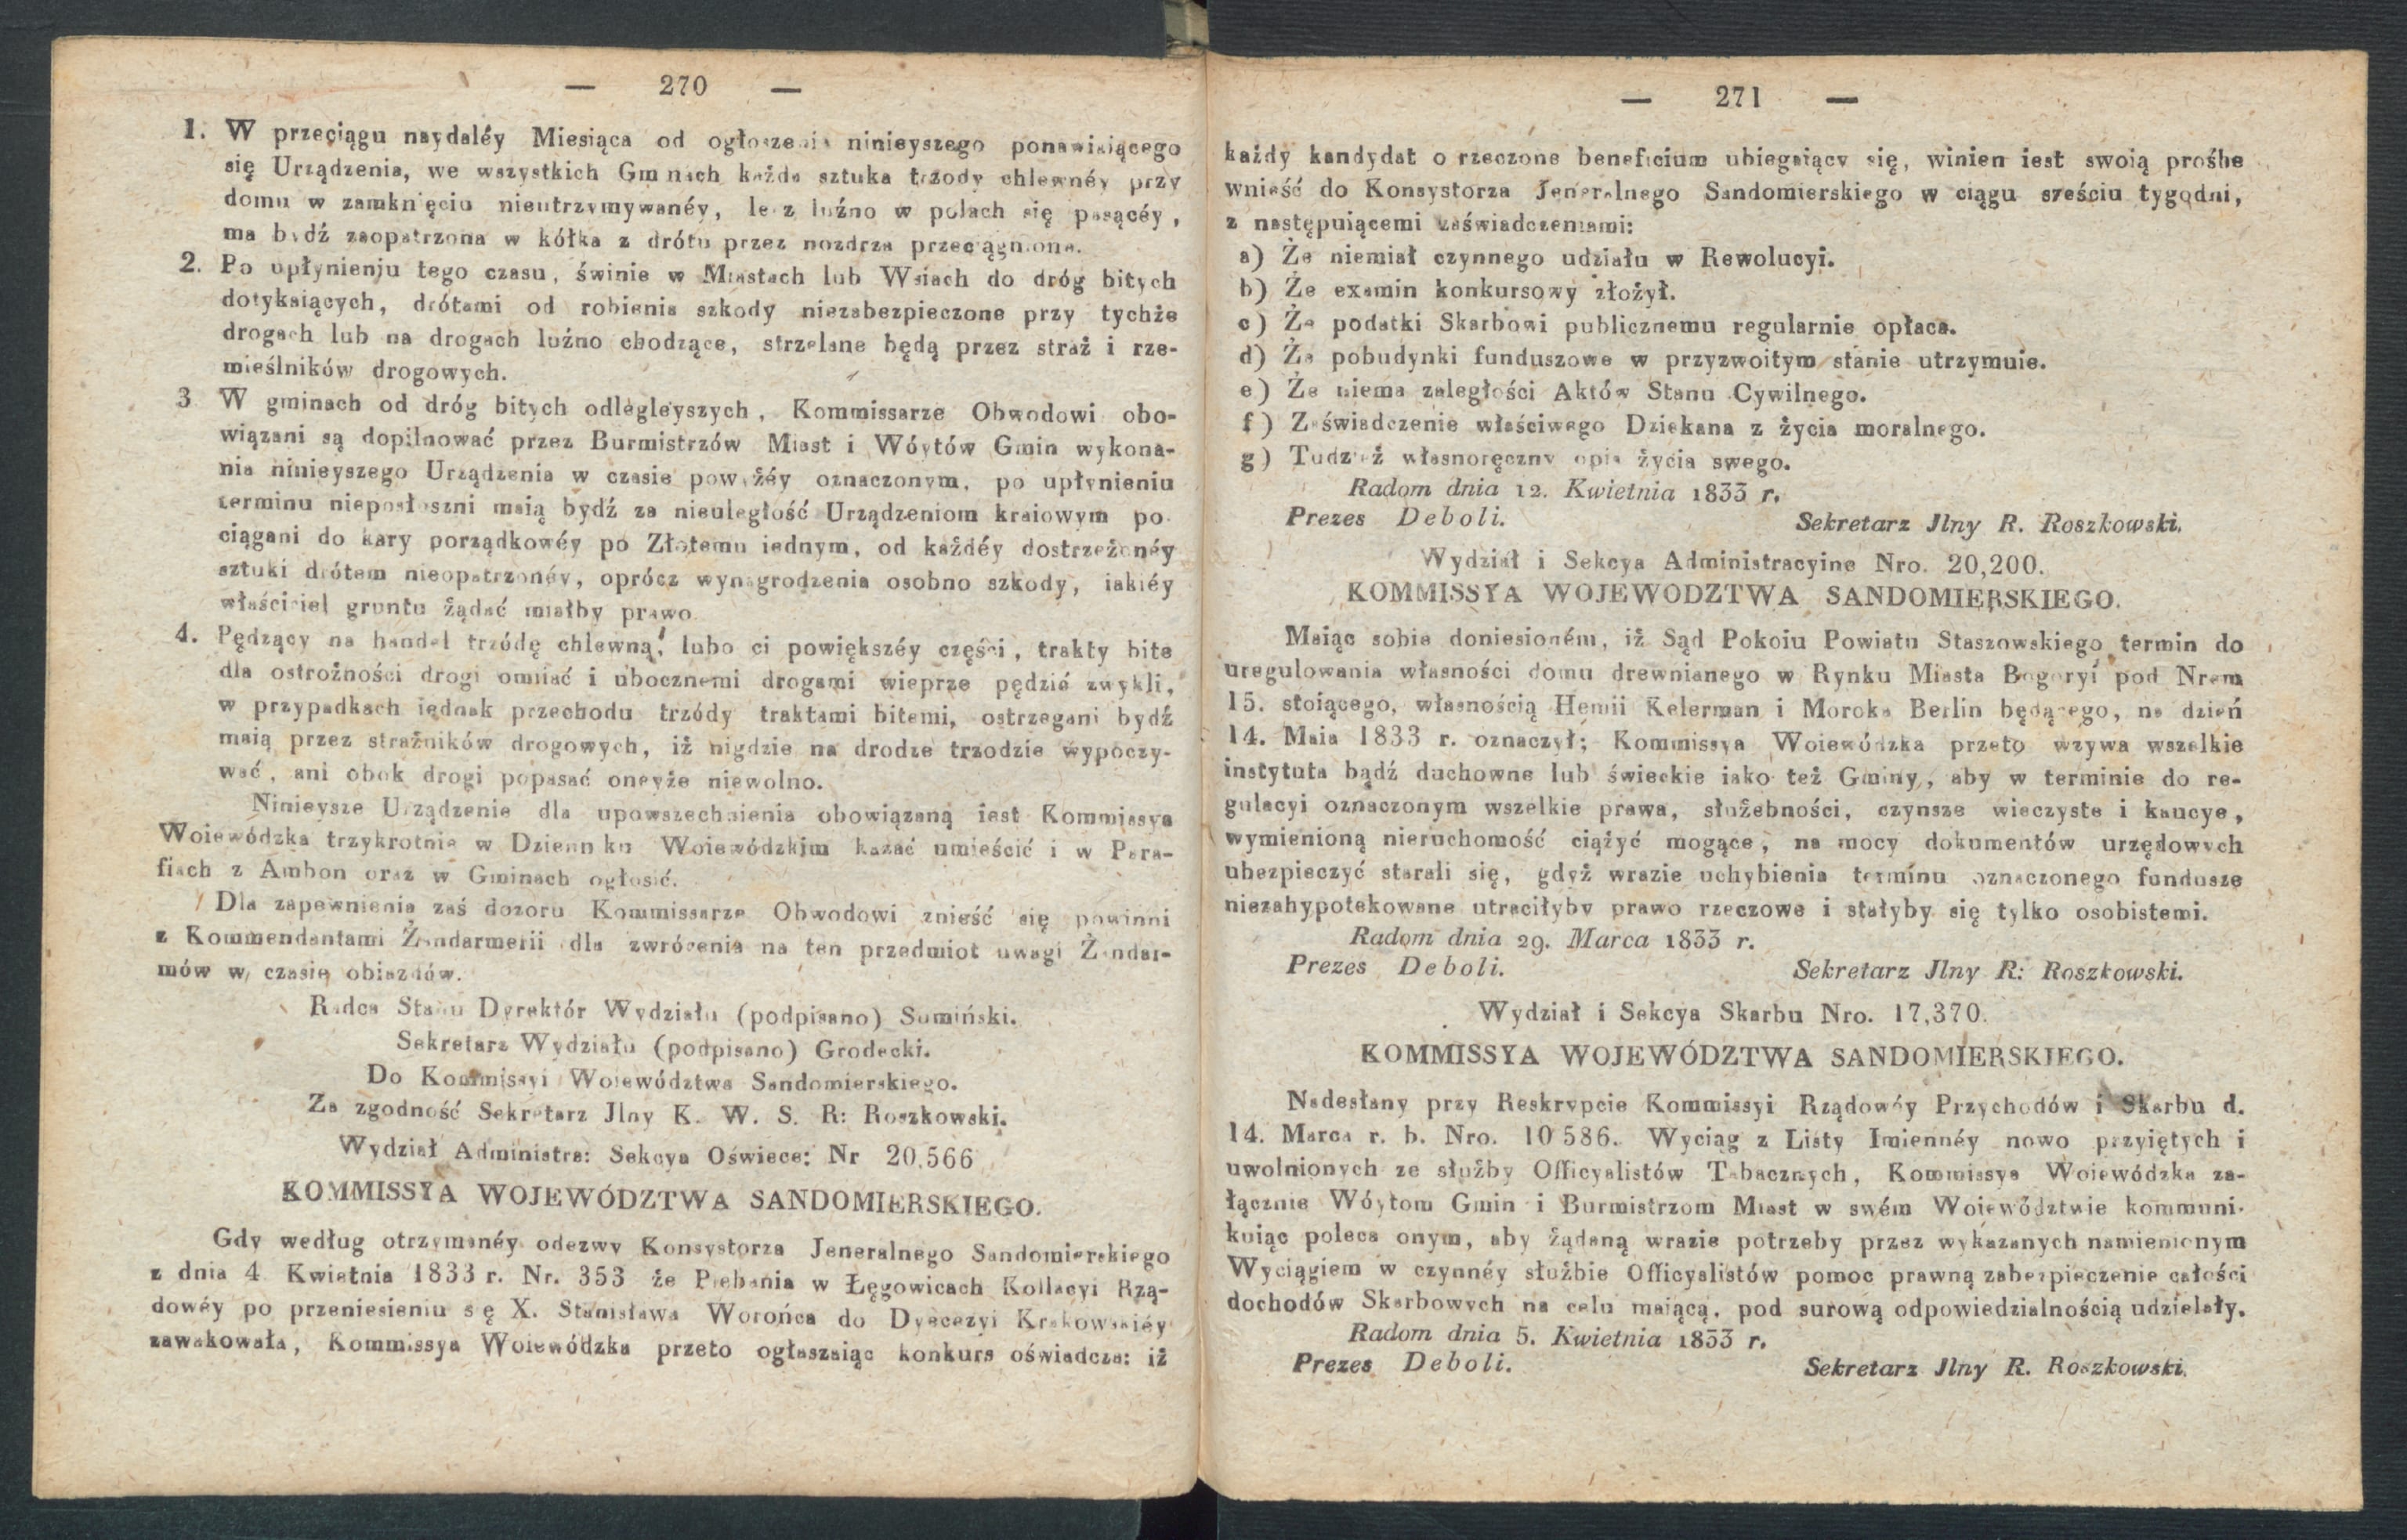 — 270 —
1. W przeciągu naydaléy Miesiąca od ogłoszenia ninieyszego ponawiaiącego
się Urządzenia, we wszystkich Gminach każda sztuka trzody chlewnéy przy
domu w zamknięciu nieutrzymywanéy, lecz luźno w polach się pasącéy,
ma bydź zaopatrzona w kółka z drótu przez nozdrza przeciągnione.
2. Po upłynieniu tego czasu, świnie w Miastach lub Wsiach do dróg bitych
dotykaiących, drótami od robienia szkody niezabezpieczone przy tychże
drogach lub na drogach luźno chodzące, strzelane będą przez straż i rze-
mieślników drogowych.
3 W gminach od dróg bitych odlegleyszych, Kommissarze Obwodowi obo-
wiązani są dopilnować przez Burmistrzów Miast i Wóytów Gmin wykona-
nia ninieyszego Urządzenia w czasie powyżéy oznaczonym, po upłynieniu
terminu nieposłuszni maią bydź za nieuległość Urządzeniom kraiowym po
ciągani do kary porządkowéy po Złotemu iednym, od każdéy dostrzeżonéy
sztuki drótem nieopatrzonéy, oprócz wynagrodzenia osobno szkody, iakiéy
właściciel gruntu żądać miałby prawo
4. Pędzący na handel trzódę chlewną, lubo ci powiększéy części, trakty bite
dla ostrożności drogi omiiać i ubocznemi drogami wieprze pędzić zwykli,
w przypadkach iednak przechodu trzódy traktami bitemi, ostrzegani bydź
maią przez strażników drogowych, iż nigdzie na drodze trzodzie wypoczy-
wać, ani obok drogi popasać oneyże niewolno.
Ninieysze Urządzenie dla upowszechnienia obowiązaną iest Kommissya
Woiewódzka trzykrotnie w Dzienniku Woiewódzkim kazać umieścić i w Para-
fiach z Ambon oraz w Gminach ogłosić.
Dla zapewnienia zaś dozoru Kommissarze Obwodowi znieść się powinni
z Kommendantami Żandarmerii dla zwrócenia na ten przedmiot uwagi Żandar-
mów w czasie obiazdów.
Radca Stanu Dyrektór Wydziału (podpisano) Sumiński.
Sekretarz Wydziału (podpisano) Grodecki.
Do Kommissyi Woiewództwa Sandomierskiego.
Za zgodność Sekretarz Jlny K. W. S. R: Roszkowski.
Wydział Administra: Sekcya Oświece: Nr 20,566
KOMMISSYA WOJEWÓDZTWA SANDOMIERSKIEGO.
Gdy według otrzymanéy odezwy Konsystorza Jeneralnego Sandomierskiego
z dnia 4 Kwietnia 1833 r. Nr. 353 że Plebania w Łęgowicach Kollacyi Rzą-
dowéy po przeniesieniu się X. Stanisława Worońca do Dyecezyi Krakowskiéy
zawakowała, Kommissya Woiewódzka przeto ogłaszaiąc konkurs oświadcza: iż
— 271 —
każdy kandydat o rzeczone beneficium ubiegaiący się, winien iest swoią prośbe
wnieść do Konsystorza Jeneralnego Sandomierskiego w ciągu sześciu tygodni,
z następuiącemi zaświadczeniami:
a) Że niemiał czynnego udziału w Rewolucyi.
b) Że examin konkursowy złożył.
c) Że podatki Skarbowi publicznemu regularnie opłaca.
d) Że pobudynki funduszowe w przyzwoitym stanie utrzymuie.
e) Że niema zaległości Aktów Stanu Cywilnego.
f) Zaświadczenie właściwego Dziekana z życia moralnego.
g) Tudzież własnoręczny opis życia swego.
Radom dnia 12. Kwietnia 1833 r.
Prezes Deboli. Sekretarz Jlny R. Roszkowski.
Wydział i Sekcya Administracyine Nro. 20,200.
KOMMISSYA WOJEWODZTWA SANDOMIERSKIEGO.
Maiąc sobie doniesioném, iż Sąd Pokoiu Powiatu Staszowskiego termin do
uregulowania własności domu drewnianego w Rynku Miasta Bogoryi pod Nrem
15. stoiącego, własnością Hemii Kelerman i Moroka Berlin będącego, na dzień
14. Maia 1833 r. oznaczył; Kommissya Woiewódzka przeto wzywa wszelkie
instytuta bądź duchowne lub świeckie iako też Gminy, aby w terminie do re-
gulacyi oznaczonym wszelkie prawa, służebności, czynsze wieczyste i kaucye,
wymienioną nieruchomość ciążyć mogące, na mocy dokumentów urzędowych
ubezpieczyć starali się, gdyż wrazie uchybienia terminu oznaczonego fundusze
niezahypotekowane utraciłyby prawo rzeczowe i stałyby się tylko osobistemi.
Radom dnia 29. Marca 1833 r.
Prezes Deboli. Sekretarz Jlny R: Roszkowski.
Wydział i Sekcya Skarbu Nro. 17,370.
KOMMISSYA WOJEWÓDZTWA SANDOMIERSKIEGO.
Nadesłany przy Reskrypcie Kommissyi Rządowéy Przychodów i Skarbu d.
14. Marca r. b. Nro. 10586. Wyciąg z Listy Imiennéy nowo przyiętych i
uwolnionych ze służby Officyalistów Tabacznych, Kommissya Woiewódzka za-
łącznie Wóytom Gmin i Burmistrzom Miast w swém Woiewództwie kommuni-
kuiąc poleca onym, aby żądaną wrazie potrzeby przez wykazanych namienionym
Wyciągiem w czynnéy służbie Officyalistów pomoc prawną zabezpieczenie całości
dochodów Skarbowych na celu maiącą, pod surową odpowiedzialnością udzielały.
Radom dnia 5. Kwietnia 1833 r.
Prezes Deboli. Sekretarz Jlny R. Roszkowski.